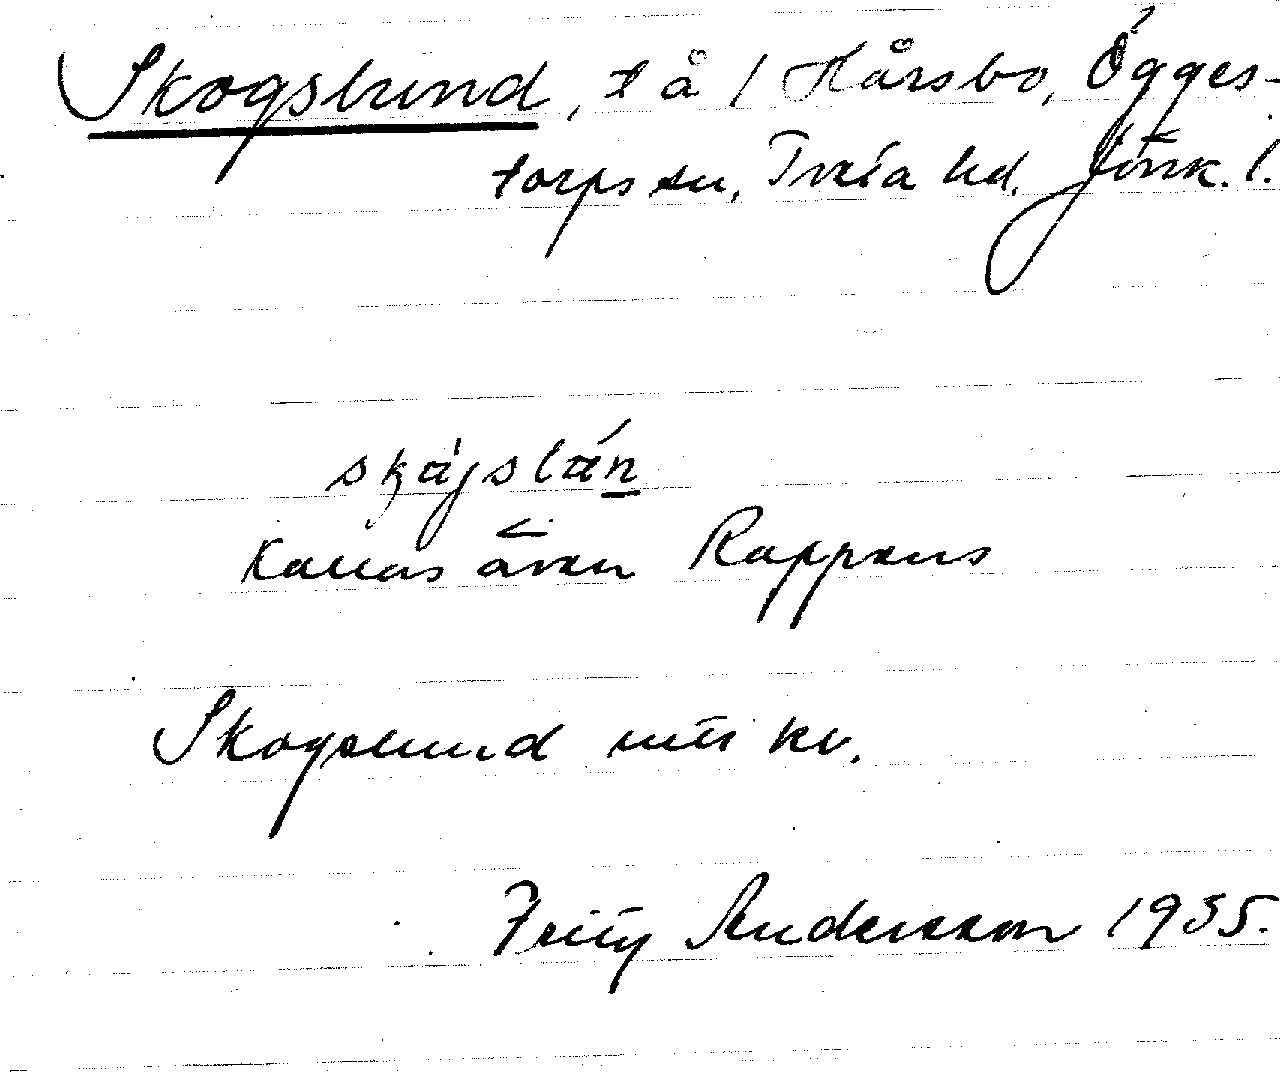 Skogslund, t å / Hårsbo, Ögges-
torps sn, Tveta hd. Jönk. l.
Kallas även Rappens
Skogslund mtr kv.
Fritz Andersson 1935.